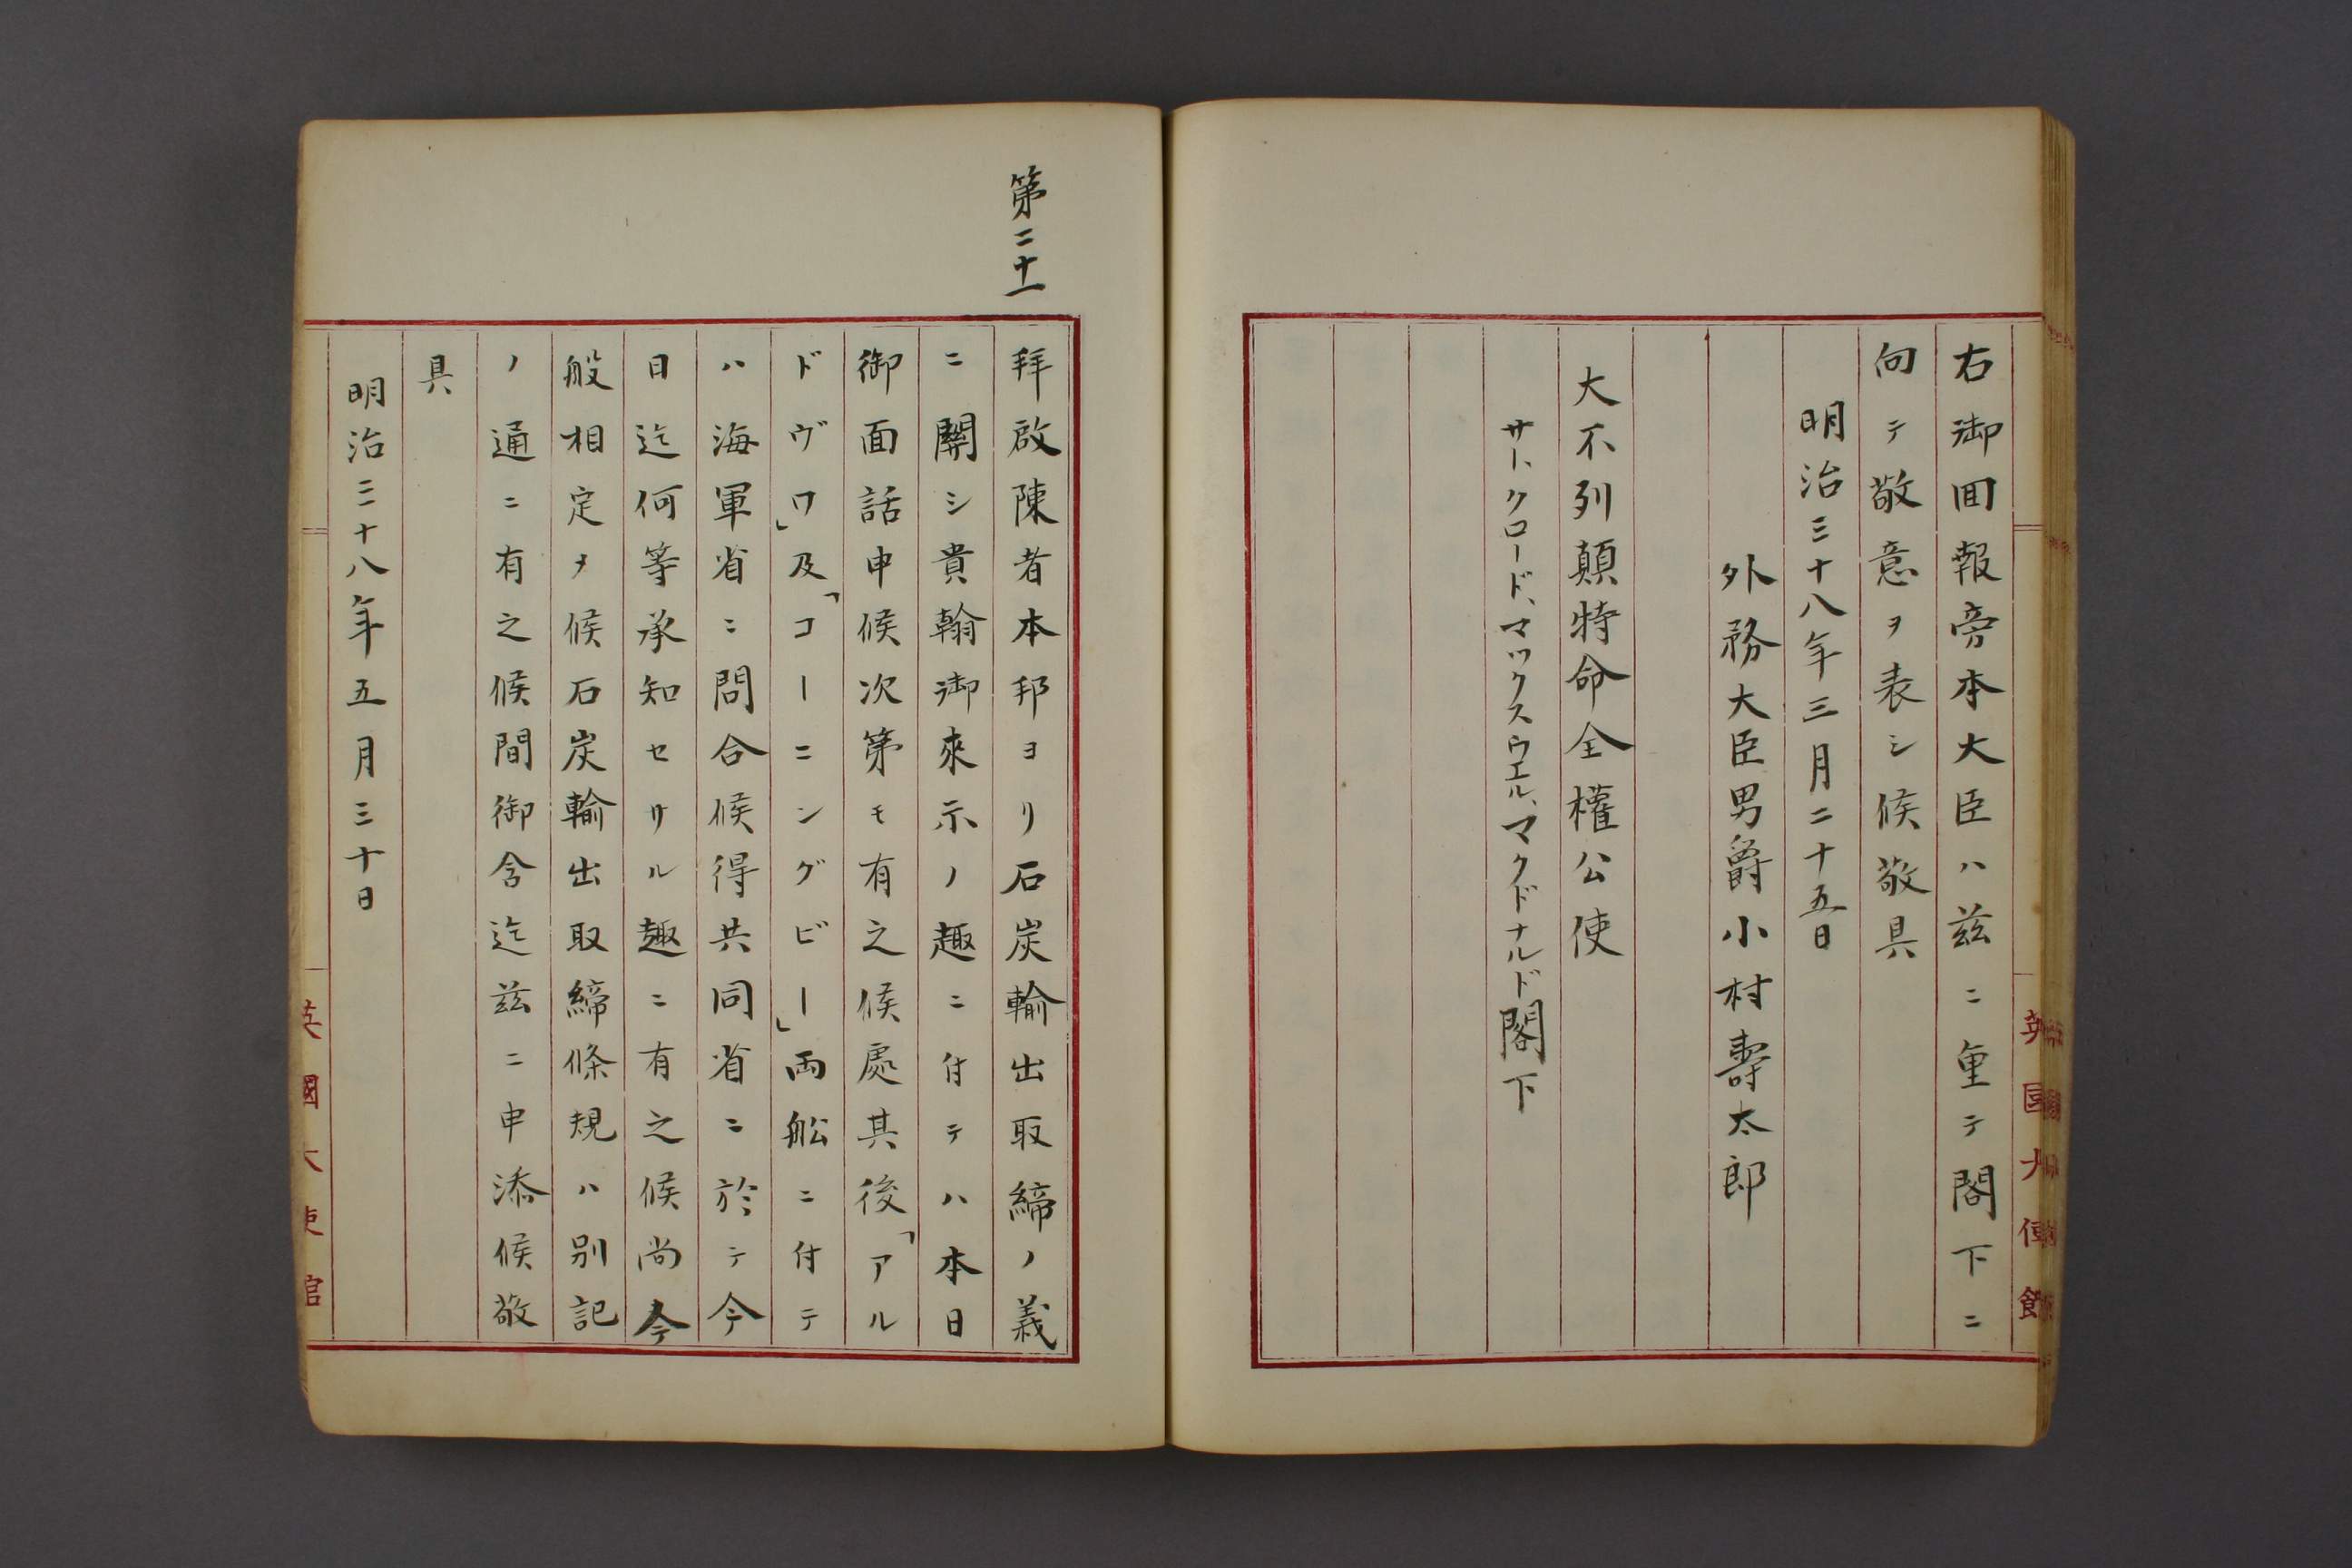 右御囬報旁本大臣ハ茲ニ重テ閣下ニ
向テ敬意ヲ表シ候敬具
明治三十八年三月二十五日
外務大臣男爵小村壽太郎
大不列顛特命全權公使
サー、クロード、マックスウエル、マクドナルド閣下
第二十一
拜啟陳者本邦ヨリ石炭輸出取締ノ義
ニ關シ貴翰御來示ノ趣ニ付テハ本日
御面話申候次第モ有之候處其後「アル
ドヴワ」及「コーニングビー」両舩ニ付テ
ハ海軍省ニ問合候得共同省ニ於テ今
日迄何等承知セサル趣ニ有之候尚今
般相定ヲ候石炭輸出取締條規ハ別記
ノ通ニ有之候間御含迄茲ニ申添候敬
具
明治三十八年五月三十日
英國大使館